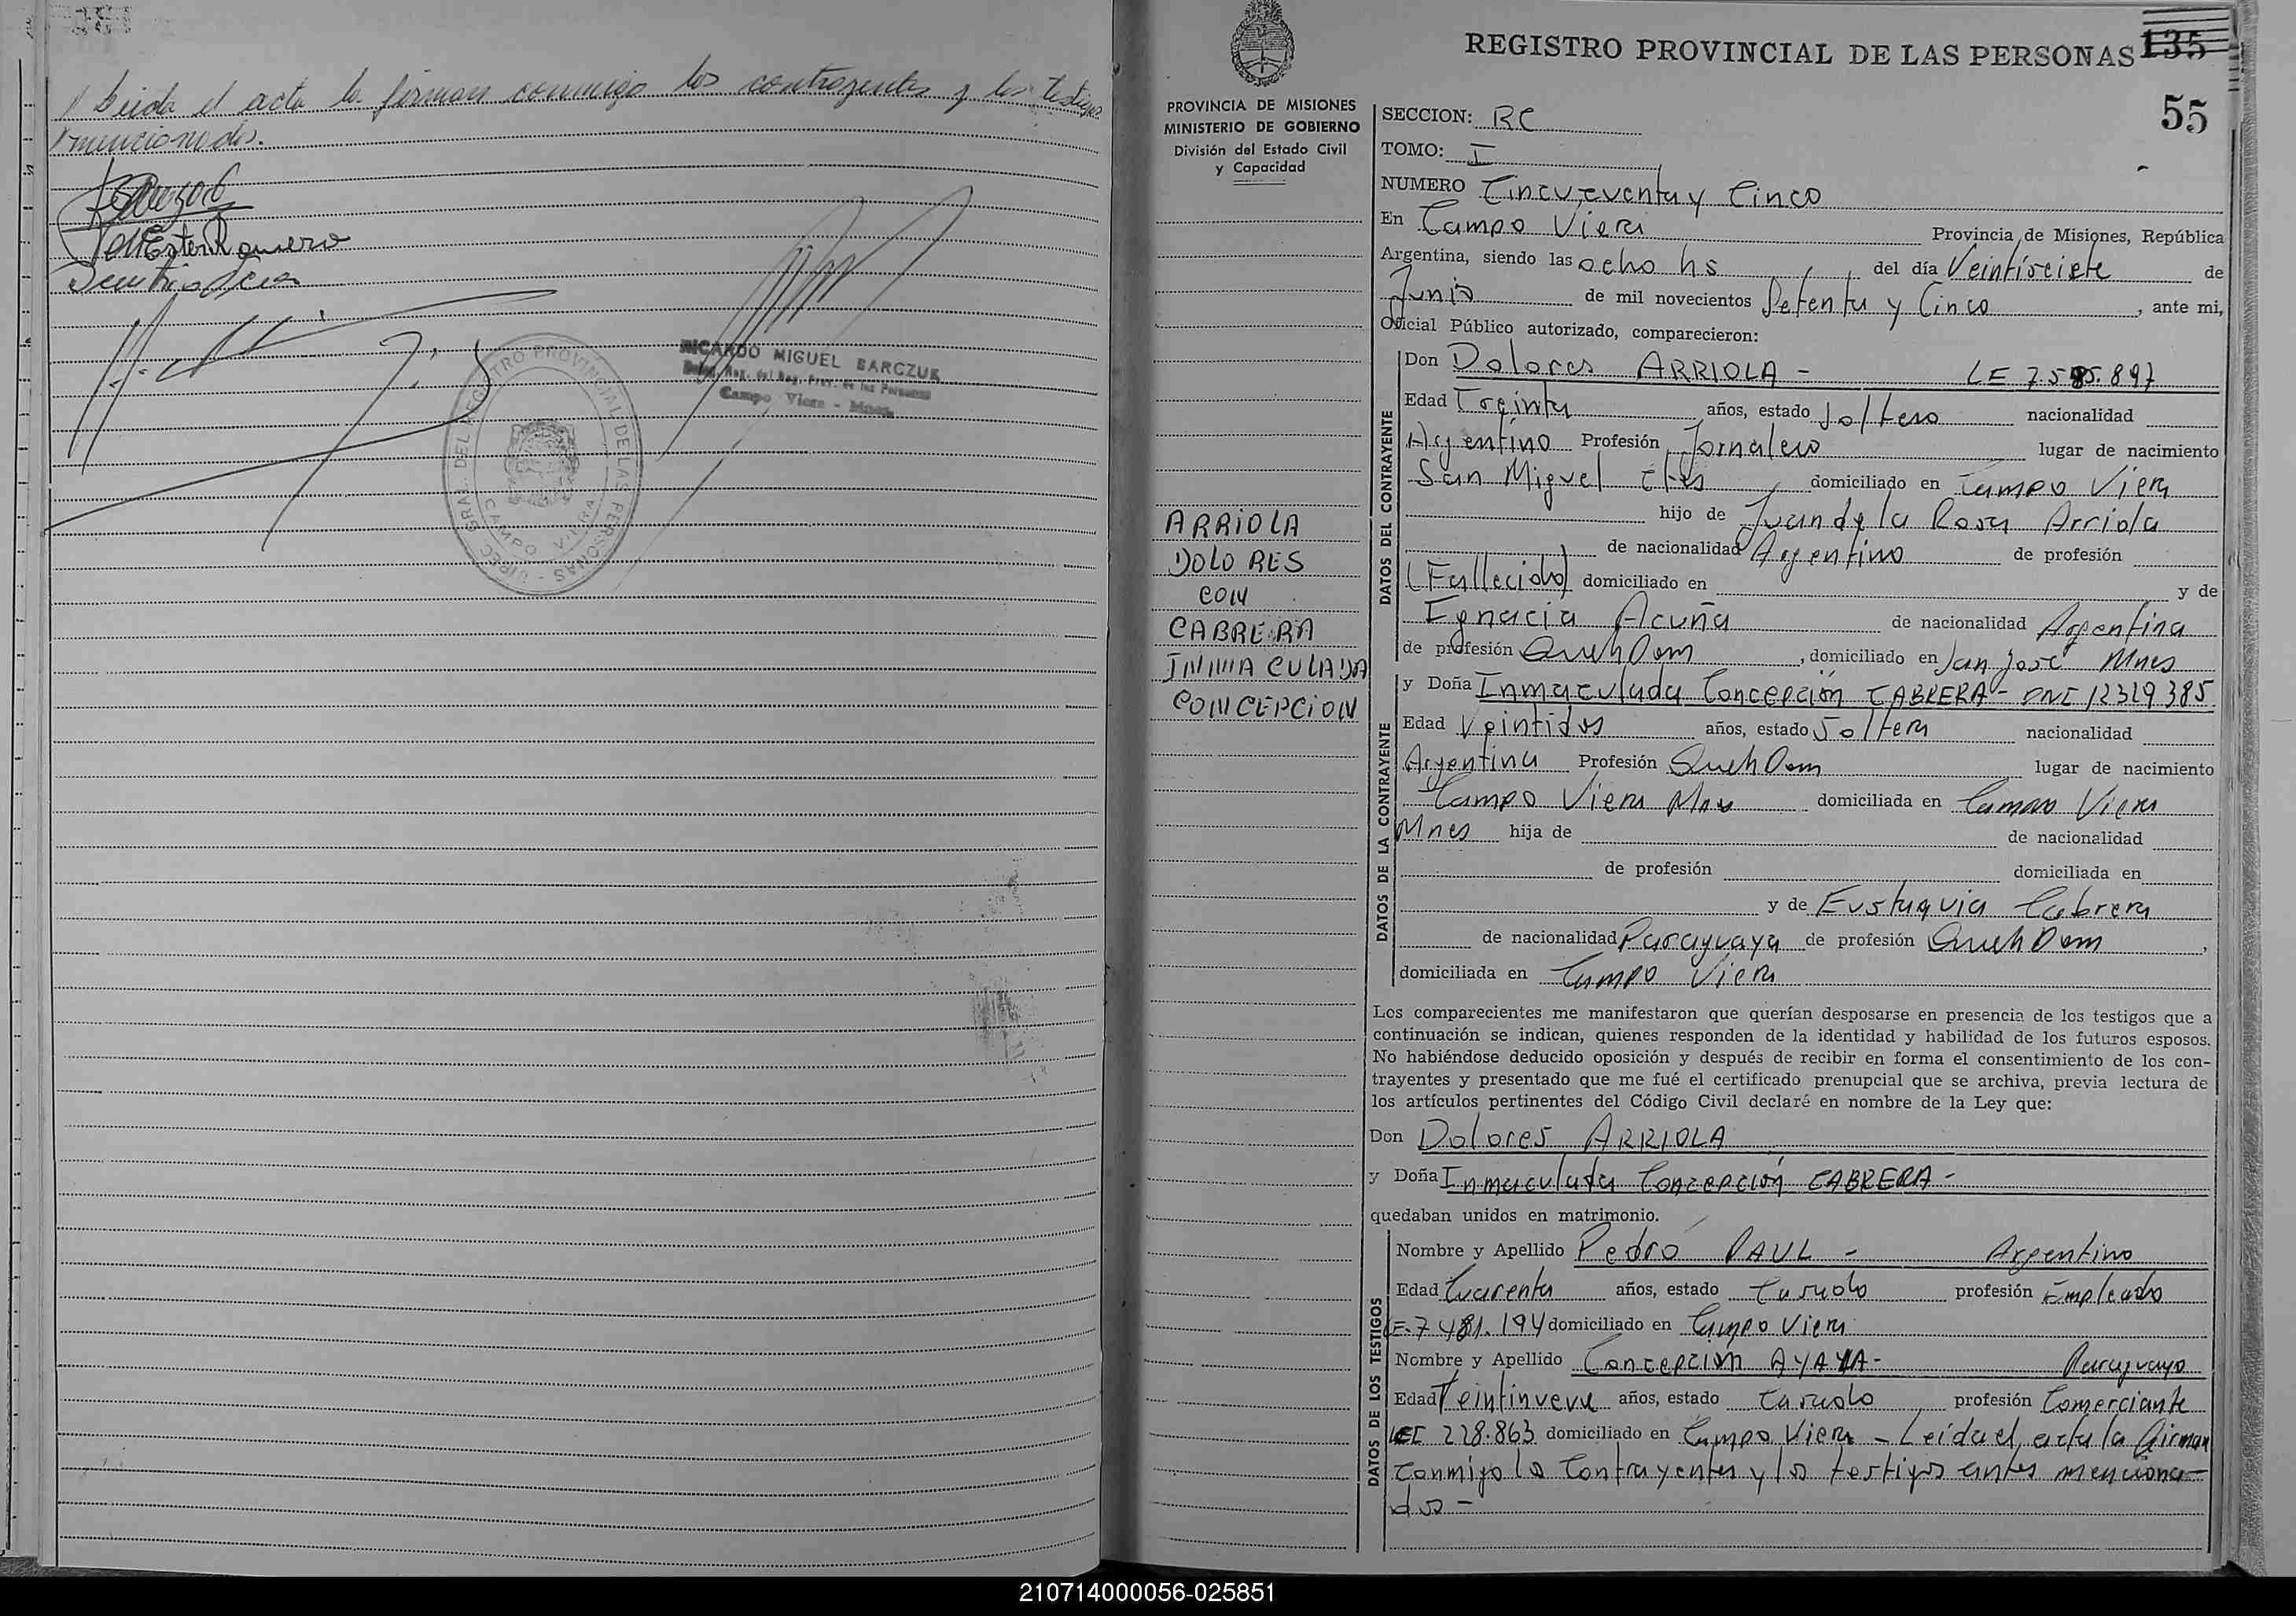 Leida el acta la firman conmigo los contrayentes y los testigos
mencionados.
Ester Romero
RICARDO MIGUEL BARCZUK
Deleg. Reg. del Reg. Prov. de las Personas
Campo Viera - Mnes.
DIREC. GRAL. DEL REGISTRO PROVINCIAL DE LAS PERSONAS -
CAMPO VIERA
REGISTRO PROVINCIAL DE LAS PERSONAS
135
55
PROVINCIA DE MISIONES
MINISTERIO DE GOBIERNO
División del Estado Civil
y Capacidad
ARRIOLA
DOLORES
CON
CABRERA
INMACULADA
CONCEPCION
SECCION: RC
TOMO: I
NUMERO Cincuenta y Cinco
En Campo Viera Provincia de Misiones, República
Argentina, siendo las ocho hs del día Veintisiete de
Junio de mil novecientos Setenta y Cinco, ante mi,
Oficial Público autorizado, comparecieron:
DATOS DEL CONTRAYENTE
Don Dolores ARRIOLA - LE 7.585.897
Edad Treinta años, estado Soltero nacionalidad
Argentino Profesión Jornalero lugar de nacimiento
San Miguel Ctes domiciliado en Campo Viera
hijo de Juan de la Rosa Arriola
de nacionalidad Argentino de profesión
(Fallecido) domiciliado en y de
Ignacia Acuña de nacionalidad Argentina
de profesión Queh Dom, domiciliado en San José Mnes
DATOS DE LA CONTRAYENTE
y Doña Inmaculada Concepción CABRERA - DNI 12329385
Edad Veintidos años, estado Soltera nacionalidad
Argentina Profesión Queh Dom lugar de nacimiento
Campo Viera Mnes domiciliada en Campo Viera
Mnes hija de de nacionalidad
de profesión domiciliada en
y de Eustaquia Cabrera
de nacionalidad Paraguaya de profesión Queh Dom,
domiciliada en Campo Viera
Los comparecientes me manifestaron que querían desposarse en presencia de los testigos que a
continuación se indican, quienes responden de la identidad y habilidad de los futuros esposos.
No habiéndose deducido oposición y después de recibir en forma el consentimiento de los con-
trayentes y presentado que me fué el certificado prenupcial que se archiva, previa lectura de
los artículos pertinentes del Código Civil declaré en nombre de la Ley que:
Don Dolores ARRIOLA
y Doña Inmaculada Concepción CABRERA -
quedaban unidos en matrimonio.
DATOS DE LOS TESTIGOS
Nombre y Apellido Pedro PAUL - Argentino
Edad Cuarenta años, estado Casado profesión Empleado
LE. 7 481.194 domiciliado en Campo Viera
Nombre y Apellido Concepción AYALA - Paraguayo
Edad Veintinueve años, estado Casado profesión Comerciante
228.863 domiciliado en Campo Viera - Leida el acta la firman
conmigo los Contrayentes y los testigos antes menciona-
dos -
210714000056-025851